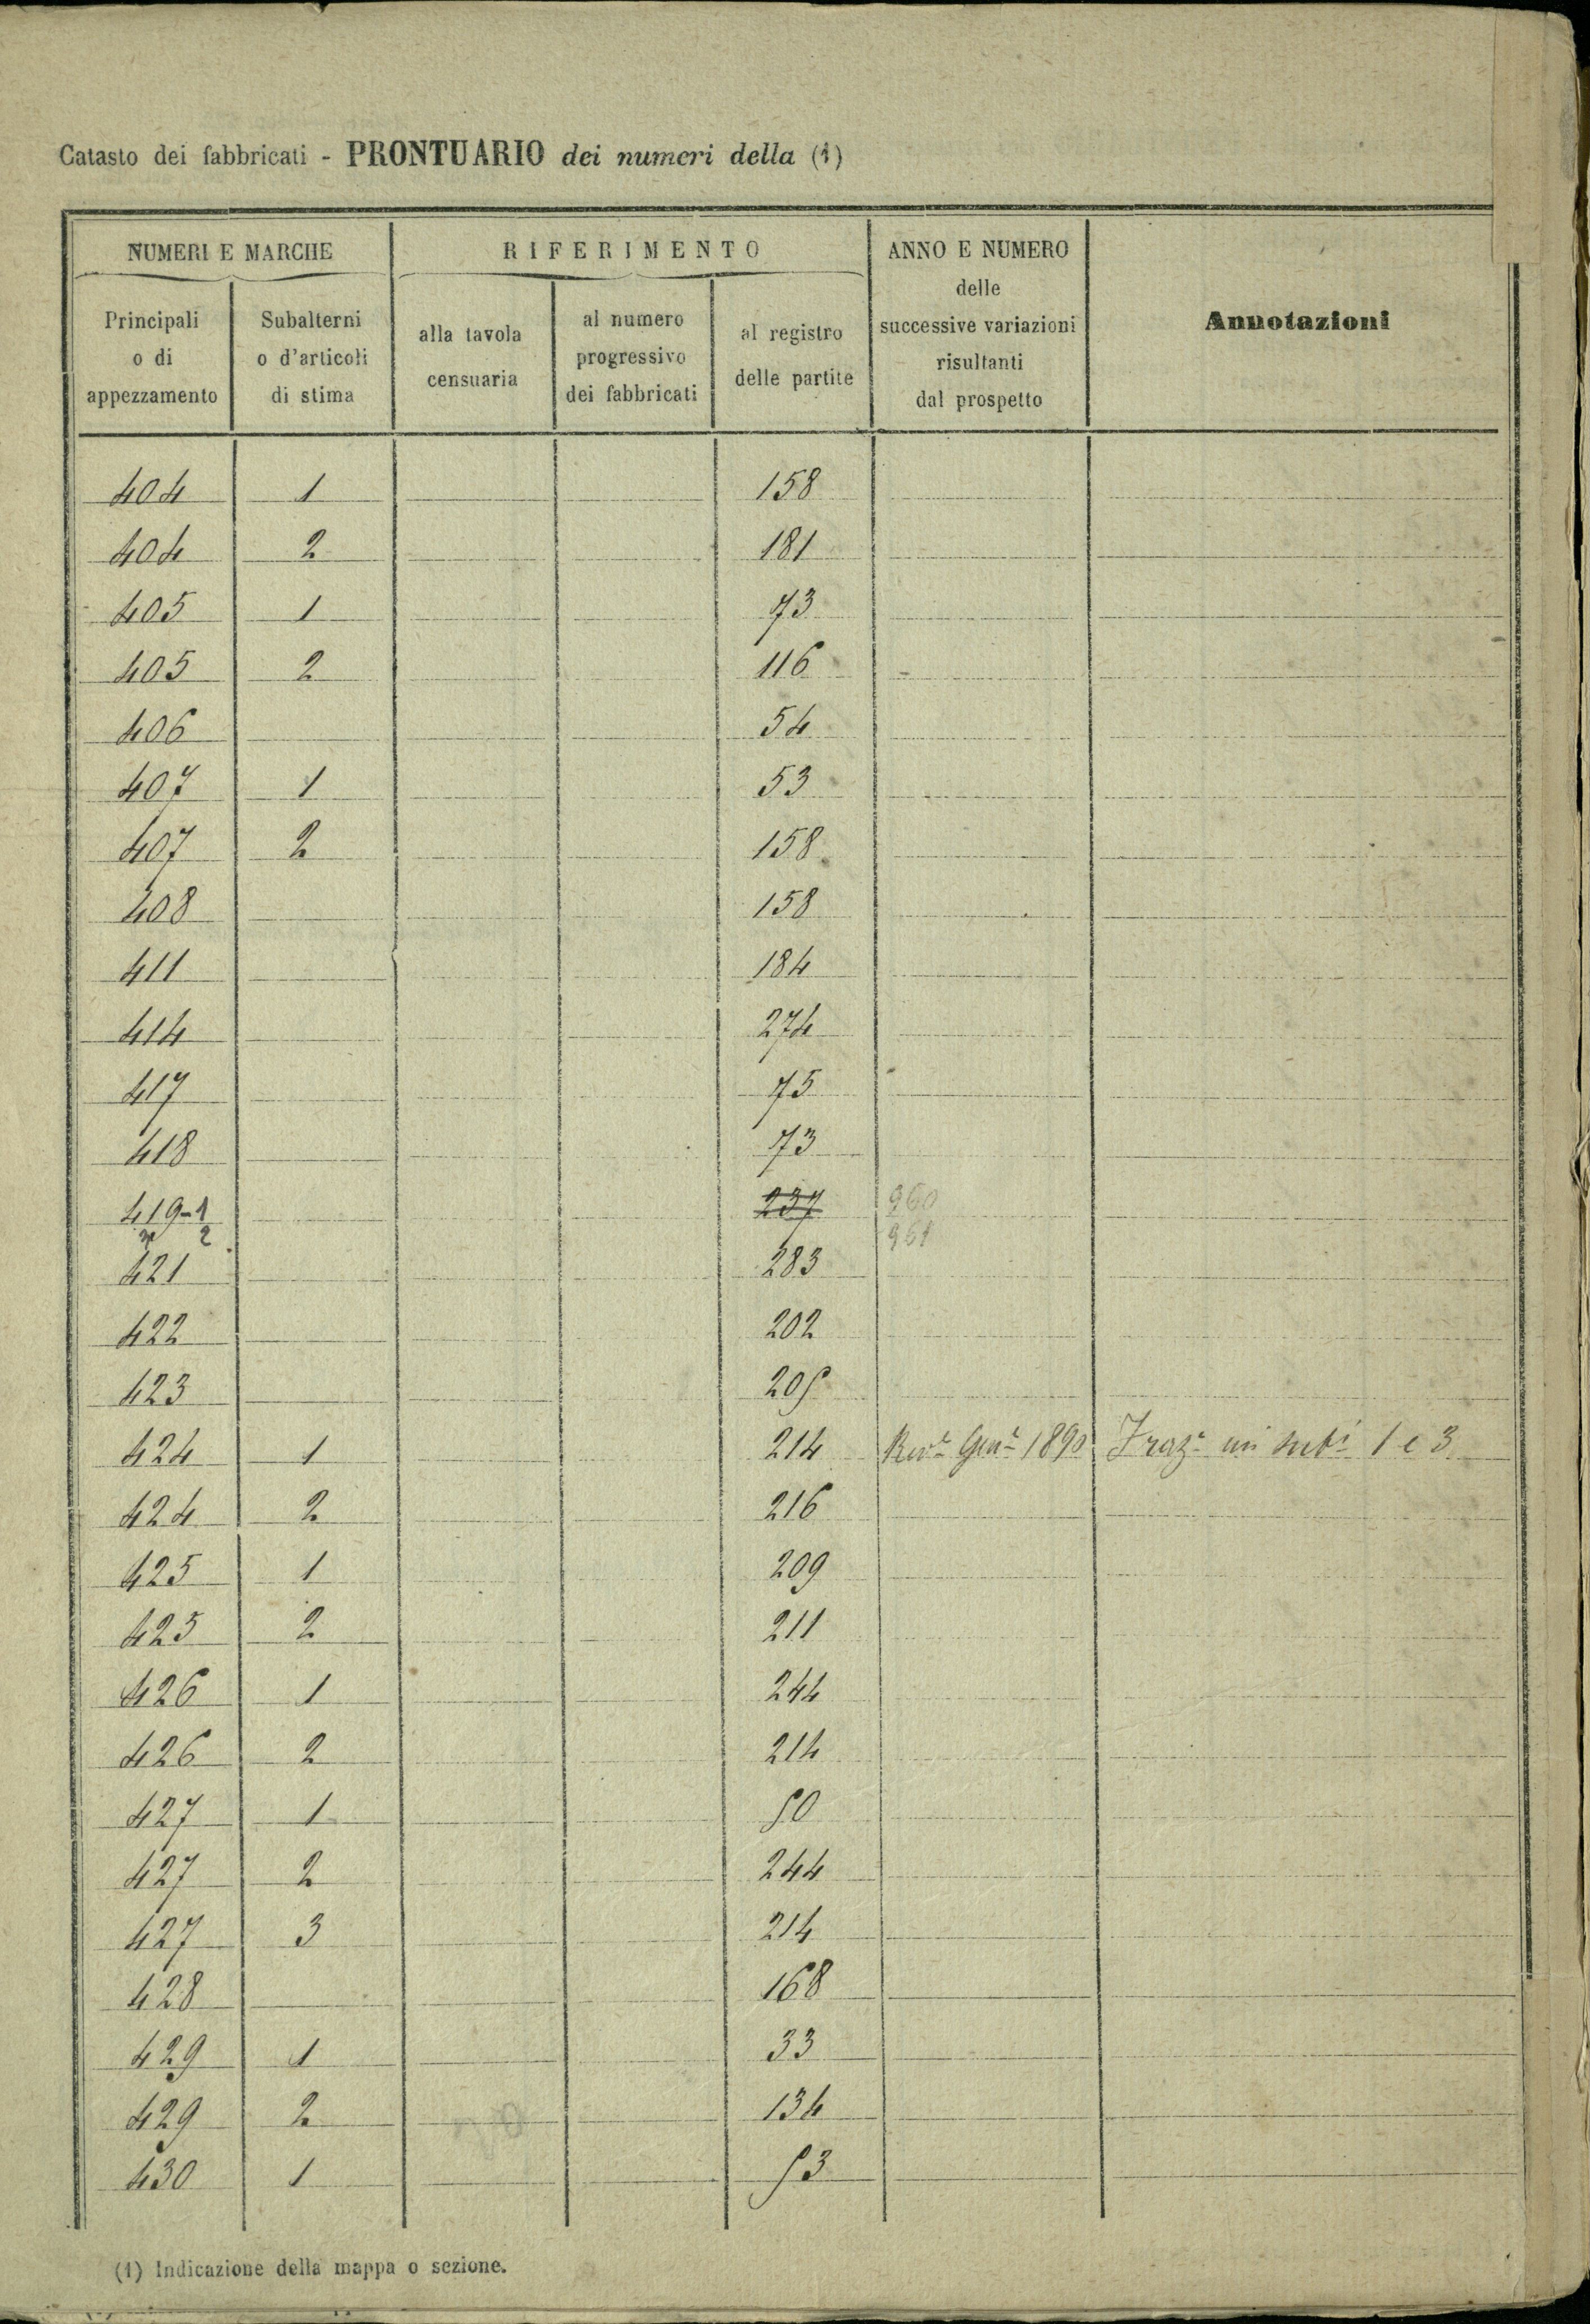 Catasto dei fabbricati - PRONTUARIO dei numeri della (1)
NUMERI E MARCHE
RIFERIMENTO
ANNO E NUMERO
delle
successive variazioni
risultanti
dal prospetto
Annotazioni
Principali
o di
appezzamento
Subalterni
o d'articoli
di stima
alla tavola
censuaria
al numero
progressivo
dei fabbricati
al registro
delle partite
404 1 158
404 2 181
405 1 73
405 2 116
406 54
407 1 53
407 2 158
408 158
411 184
414 274
417 75
418 73
419-1 237 960
2 961
421 283
422 202
423 205
424 1 214 Revne Genle 1890 Fraz. in subi 1 e 3
424 2 216
425 1 209
425 2 211
426 1 244
426 2 214
427 1 50
427 2 244
427 3 214
428 168
429 1 33
429 2 134
430 1 53
(1) Indicazione della mappa o sezione.